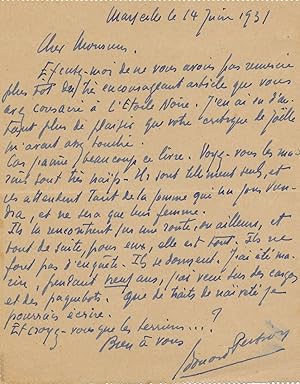 Marseille le 14 Juin 1931
Cher Monsieur,
Excusez-moi de ne vous avoir pas remercié
plus tôt du très encourageant article que vous
avez consacré à L'Etoile Noire. J'en ai eu d'au-
tant plus de plaisir que votre critique de Joëlle
m'avait assez touché.
Car j'aime beaucoup ce livre. Voyez-vous les ma-
rins sont très naïfs. Ils sont tellement seuls, et
ils attendent tant de la femme qui un jour vien-
dra, et ne sera que leur femme.
Ils la rencontrent sur une route, ou ailleurs, et
tout de suite, pour eux, elle est tout. Ils ne
font pas d'enquête. Ils se donnent. J'ai été ma-
rin, pendant neuf ans, j'ai vécu sur des cargos
et des paquebots. Que de traits de naïveté je
pourrais écrire.
Et croyez-vous que les terriens... ?
Bien à vous
Edouard Peisson